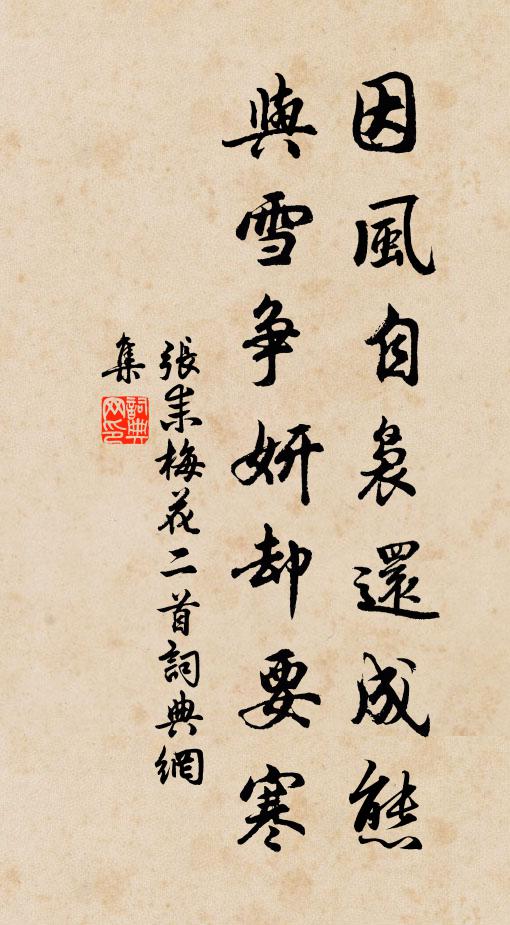 因風自裊還成態
與雪争妍却要寒
張耒梅花二首詞典網
集
詞典
网印